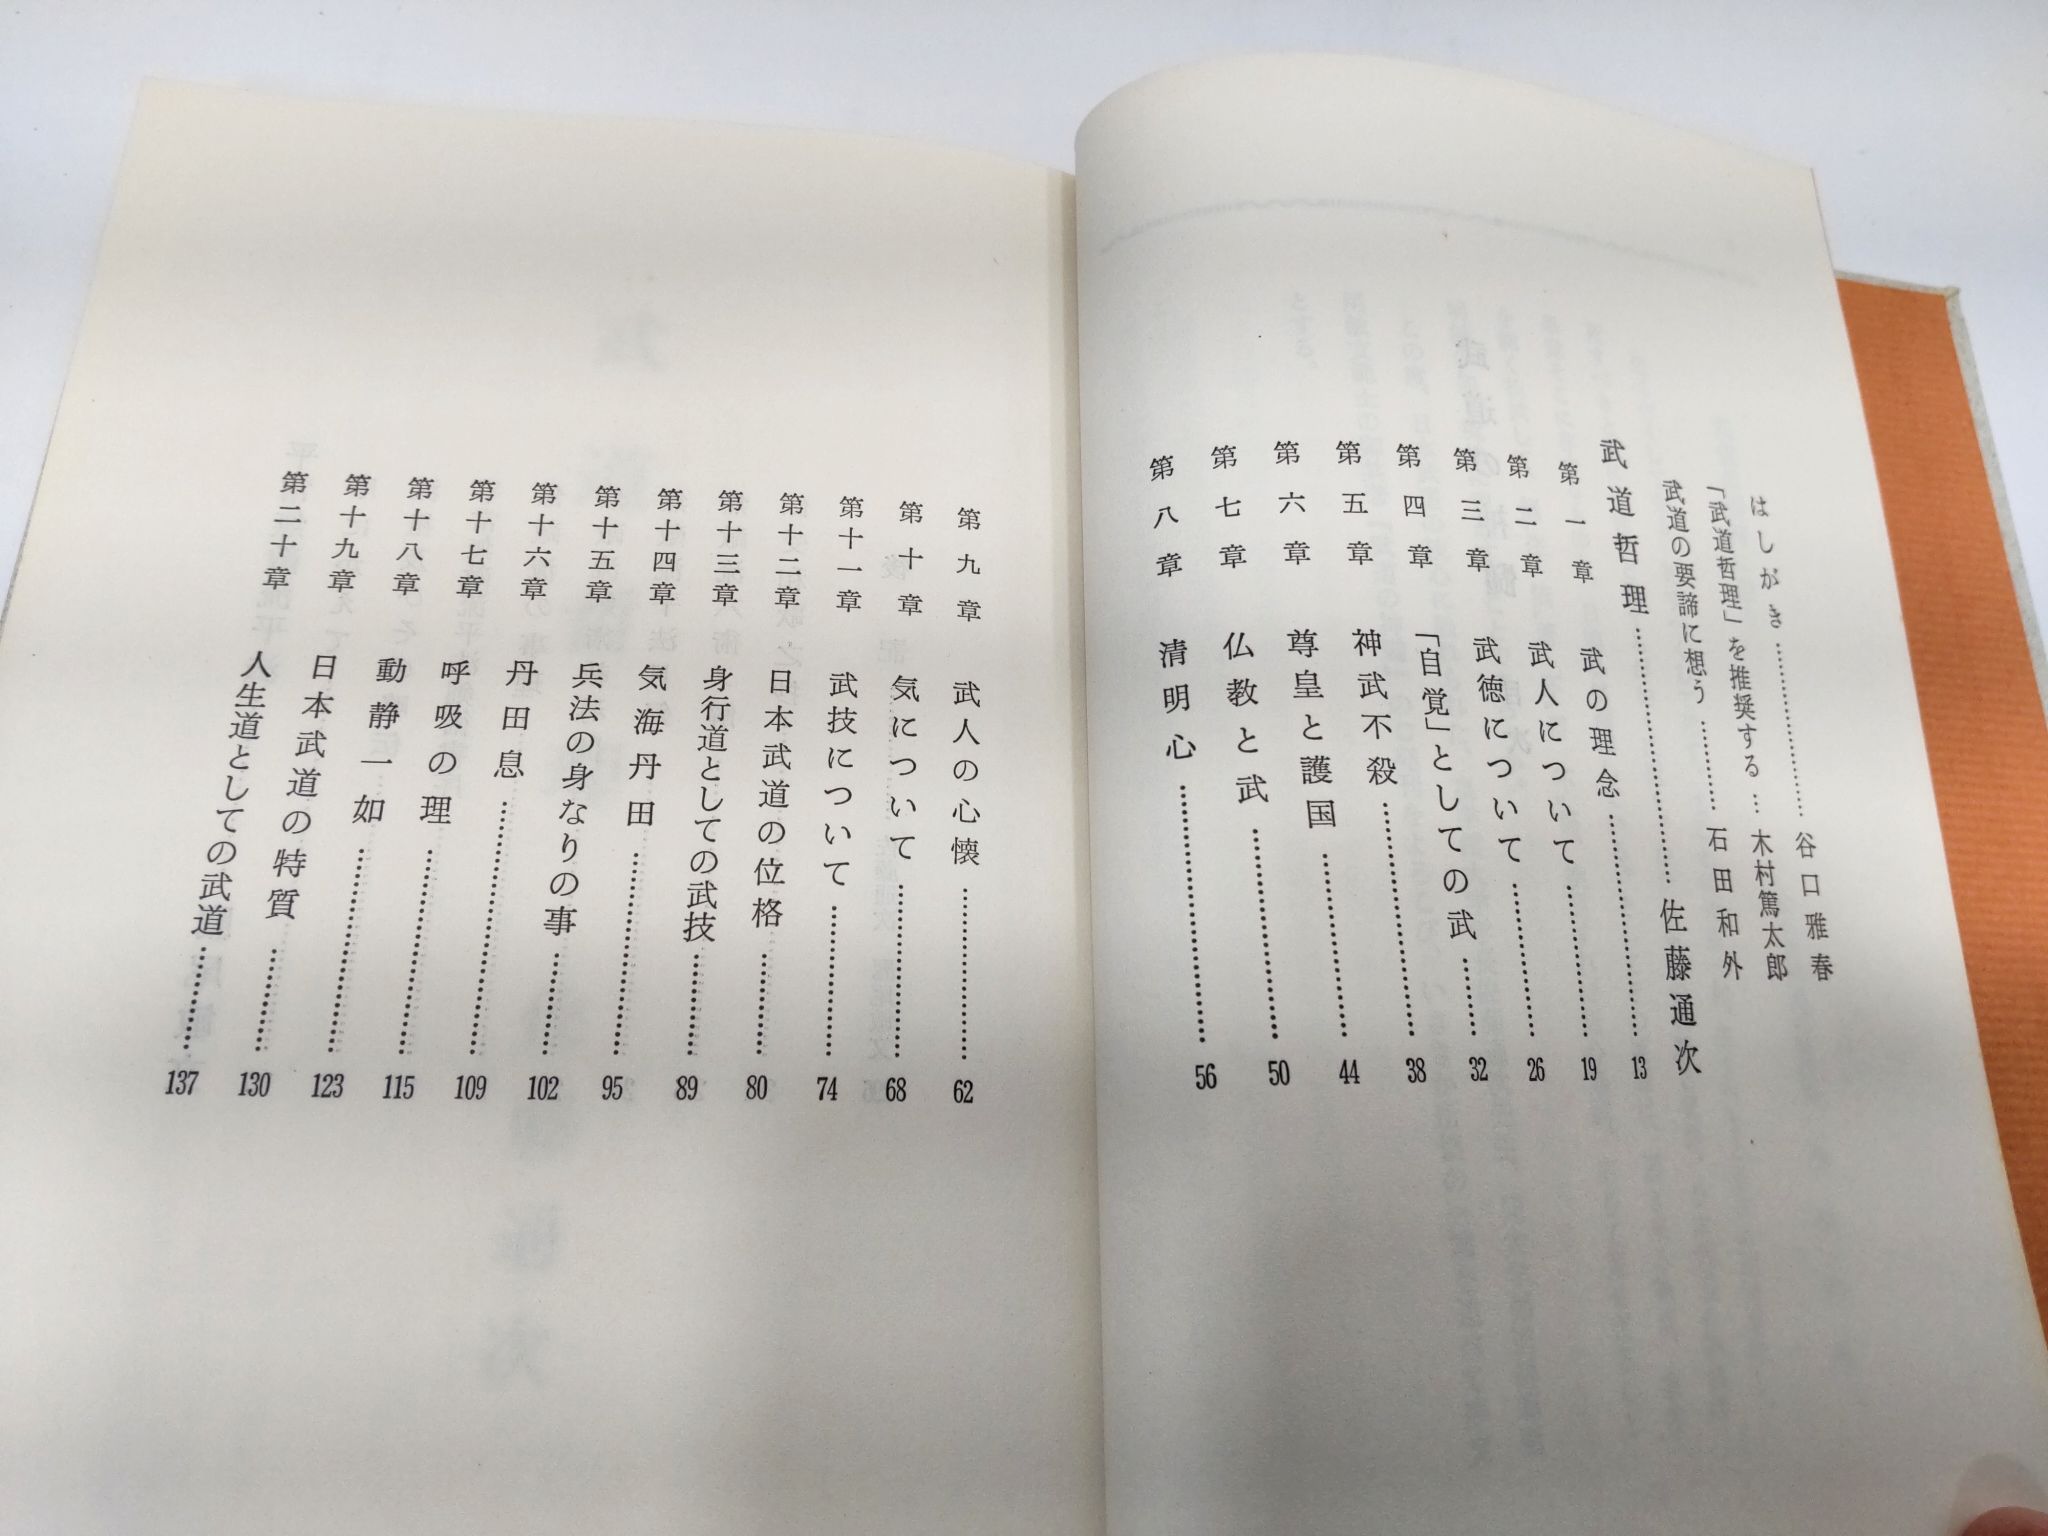 はしがき……………谷口雅春
「武道哲理」を推奨する…木村篤太郎
武道の要諦に想う………石田和外
武道哲理……………………佐藤通次
第一章 武の理念……………………13
第二章 武人について………………19
第三章 武徳について………………26
第四章 「自覚」としての武………32
第五章 神武不殺……………………38
第六章 尊皇と護国…………………44
第七章 仏教と武……………………50
第八章 清明心………………………56
第九章 武人の心懐…………………62
第十章 気について…………………68
第十一章 武技について……………74
第十二章 日本武道の位格…………80
第十三章 身行道としての武技……89
第十四章 気海丹田…………………95
第十五章 兵法の身なりの事………102
第十六章 丹田息……………………109
第十七章 呼吸の理…………………115
第十八章 動静一如…………………123
第十九章 日本武道の特質…………130
第二十章 人生道としての武道……137